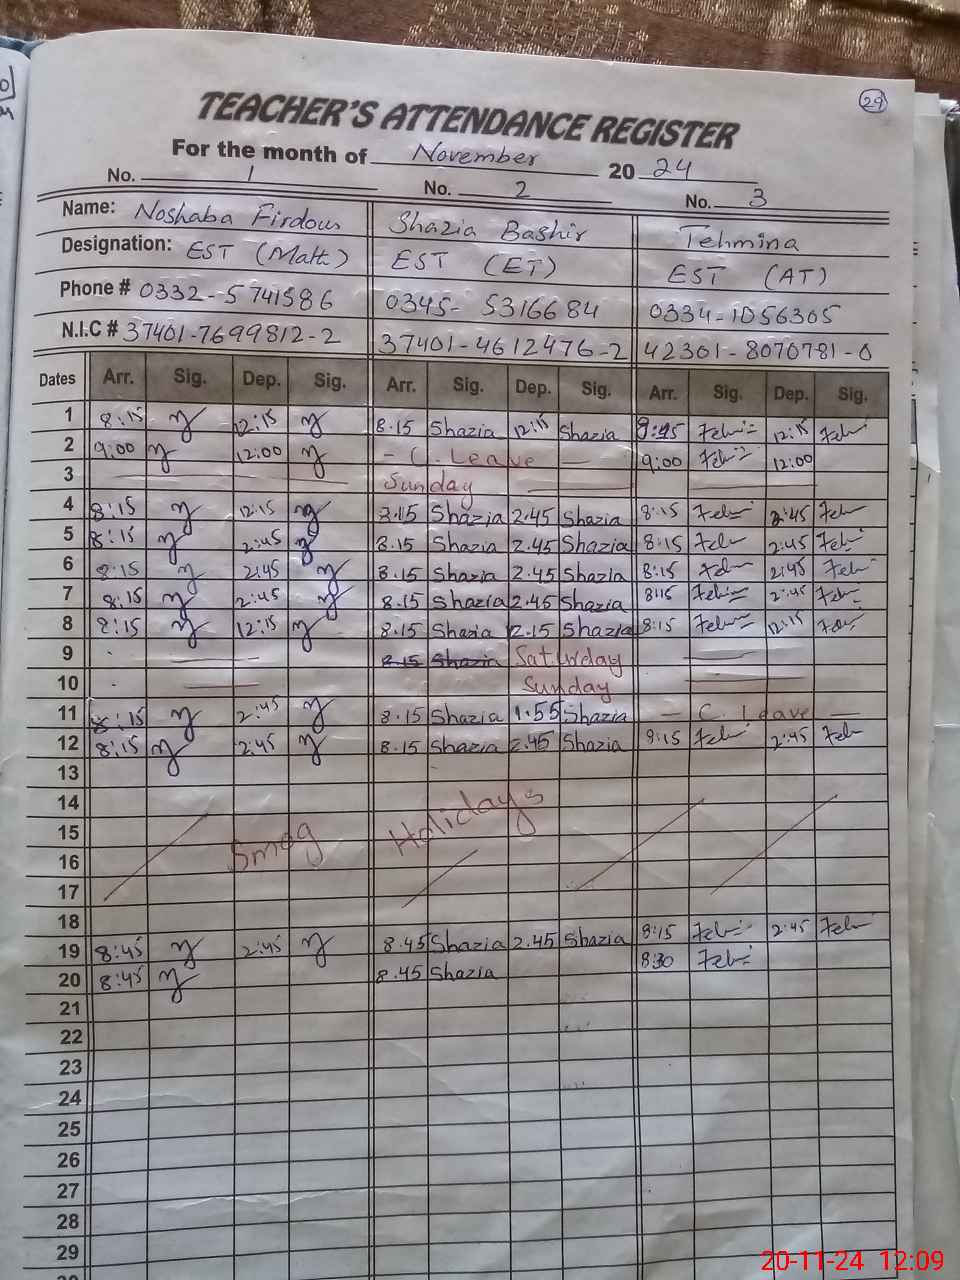 29
TEACHER'S ATTENDANCE REGISTER
For the month of November 2024
No. 1 No. 2 No. 3
Name: Noshaba Firdous Shazia Bashir Tehmina
Designation: EST (Math) EST (ET) EST (AT)
Phone # 0332-5741586 0345-5316684 0334-1056305
N.I.C # 37401-7699812-2 37401-4612476-2 42301-8070781-0
Dates Arr. Sig. Dep. Sig. Arr. Sig. Dep. Sig. Arr. Sig. Dep. Sig.
1 8:15 12:15 8.15 Shazia 12:15 Shazia 12:15
2 9:00 12:00 - C. Leave - 9:00 12:00
3 Sunday
4 8:15 12:15 8.15 Shazia 2.45 Shazia 8:15 2:45
5 8:15 2:45 8.15 Shazia 2.45 Shazia 8:15 2:45
6 8:15 2:45 8.15 Shazia 2.45 Shazia 8:15 2:45
7 8:15 2:45 8.15 Shazia 2.45 Shazia 8:15 2:45
8 8:15 12:15 8:15 Shazia 12.15 Shazia 8:15 12:15
9 8.15 Shazia Saturday
10 Sunday
11 8:15 2:45 8.15 Shazia 1.55 Shazia - C. Leave -
12 8:15 2:45 8.15 Shazia 2.45 Shazia 8:15 2:45
13
14
15 Smog Holidays
16
17
18
19 8:45 2:45 8.45 Shazia 2.45 Shazia 8:15 2:45
20 8:45 8.45 Shazia 8:30
21
22
23
24
25
26
27
28
29
20-11-24 12:09